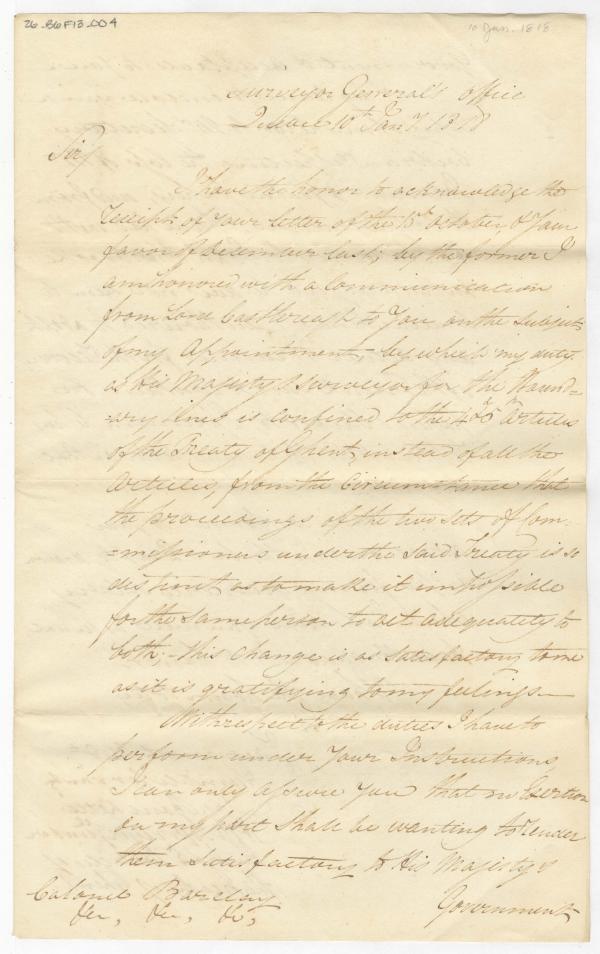 26-B6F13-004
10 Jan. 1818
Surveyor General's Office
Quebec 10th Jany. 1818
Sir/
I have the honor to acknowledge the
receipt of Your letter of the 15th October & Your
favor of December last; by the former I
am honored with a Communication
from Lord Castlereagh to You on the Subject
of my Appointment, by which my duty
as His Majesty's Surveyor for the Bound=
=ary lines is confined to the 4 & 5th Articles
of the Treaty of Ghent, instead of all the
Articles, from the Circumstance that
the proceedings of the two Sets of Com=
=missioners under the Said Treaty is so
distinct as to make it impossible
for the same person to act adequately to
both; this Change is as Satisfactory to me
as it is gratifying to my feelings—
With respect to the duties I have to
perform under Your Instructions
I can only assure You that no Exertion
on my part Shall be wanting to render
them Satisfactory to His Majesty's
Colonel Barclay
&c, &c, &c,
Government